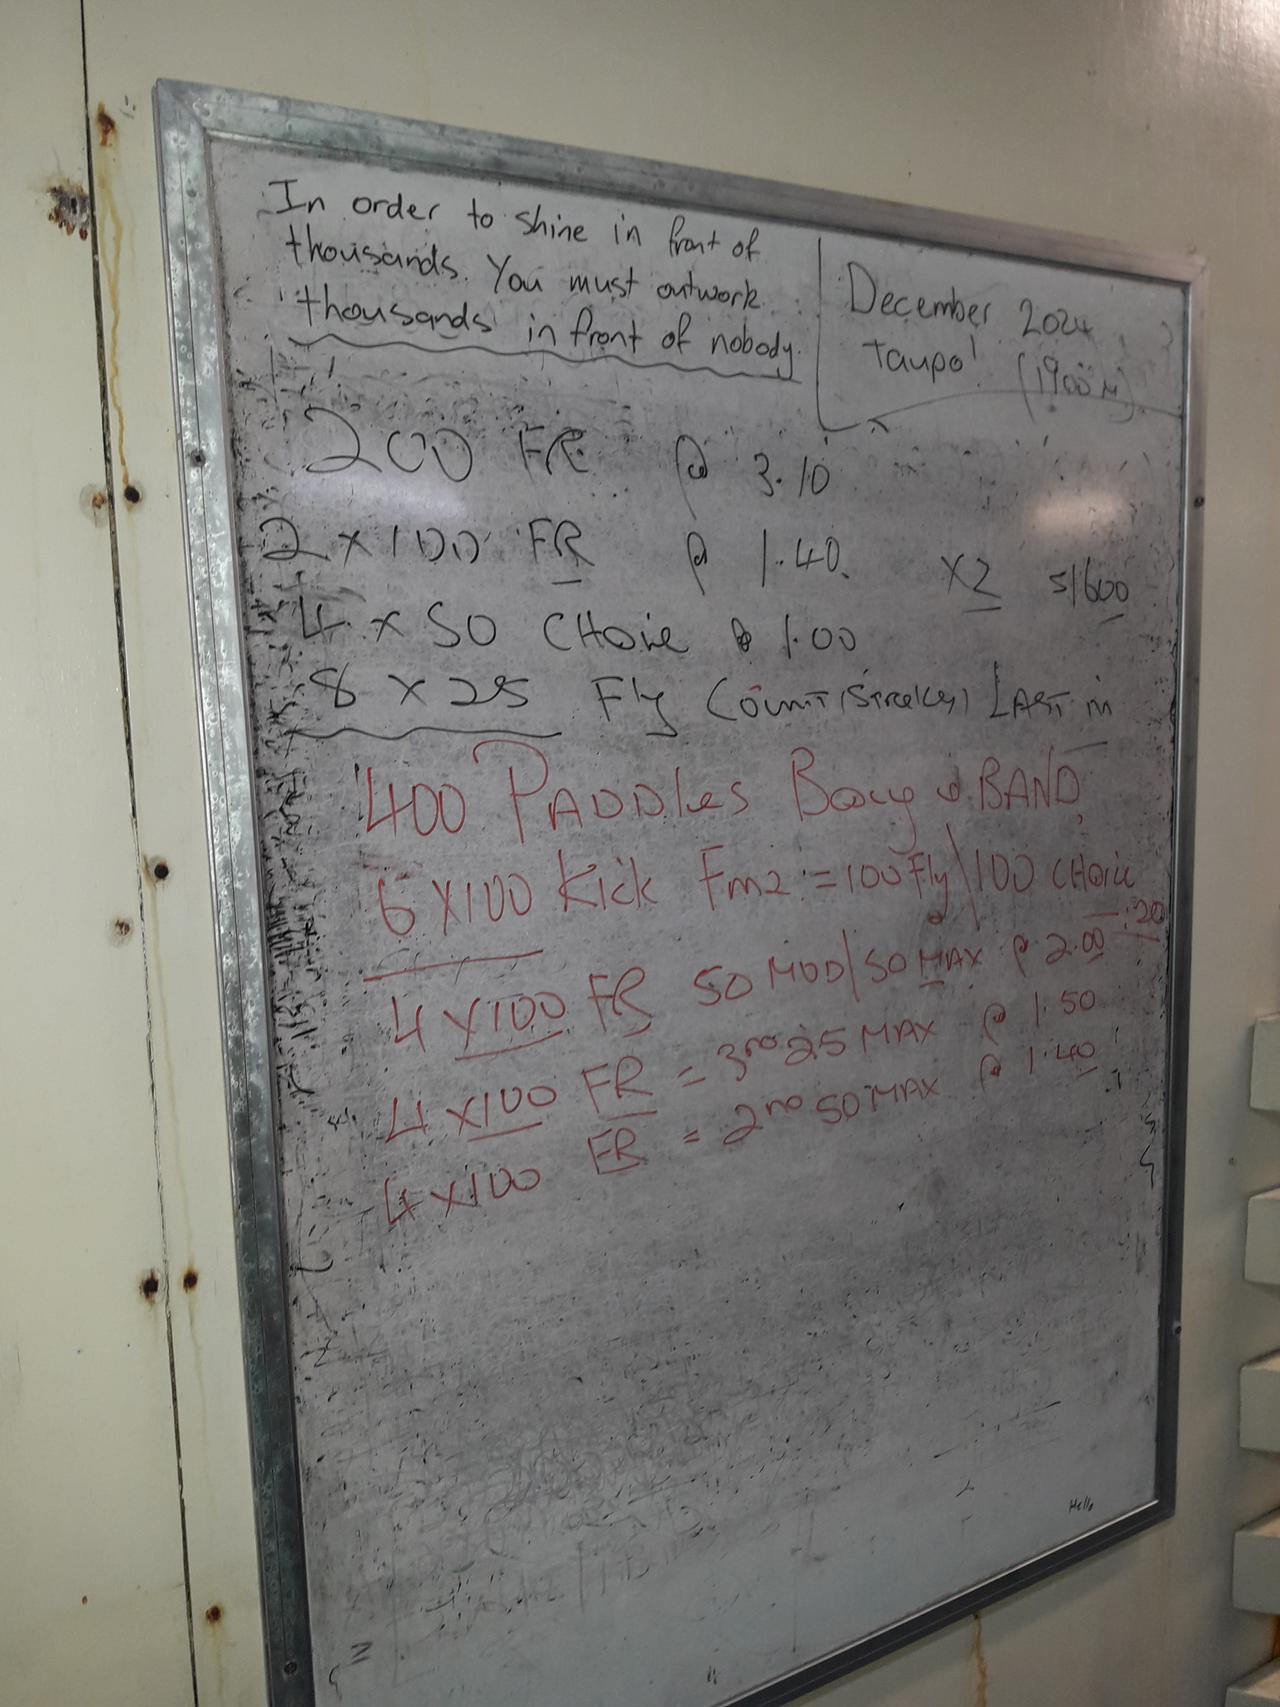 In order to shine in front of
thousands. You must outwork
thousands in front of nobody.
December 2024
Taupo
(1900m)
200 FR @ 3.10
2 x 100 FR @ 1.40. x2 s/600
4 x 50 CHOICE @ 1.00
8 x 25 Fly Count (Strokes) LAST in
400 PADDles Bouy & BAND
6 x 100 Kick Fm2 = 100 Fly \ 100 CHOICE
:20
4 x 100 FR 50 MOD/50 MAX @ 2.00
4 x 100 FR = 3RD 25 MAX @ 1.50
4 x 100 FR = 2ND 50 MAX @ 1.40
Hello